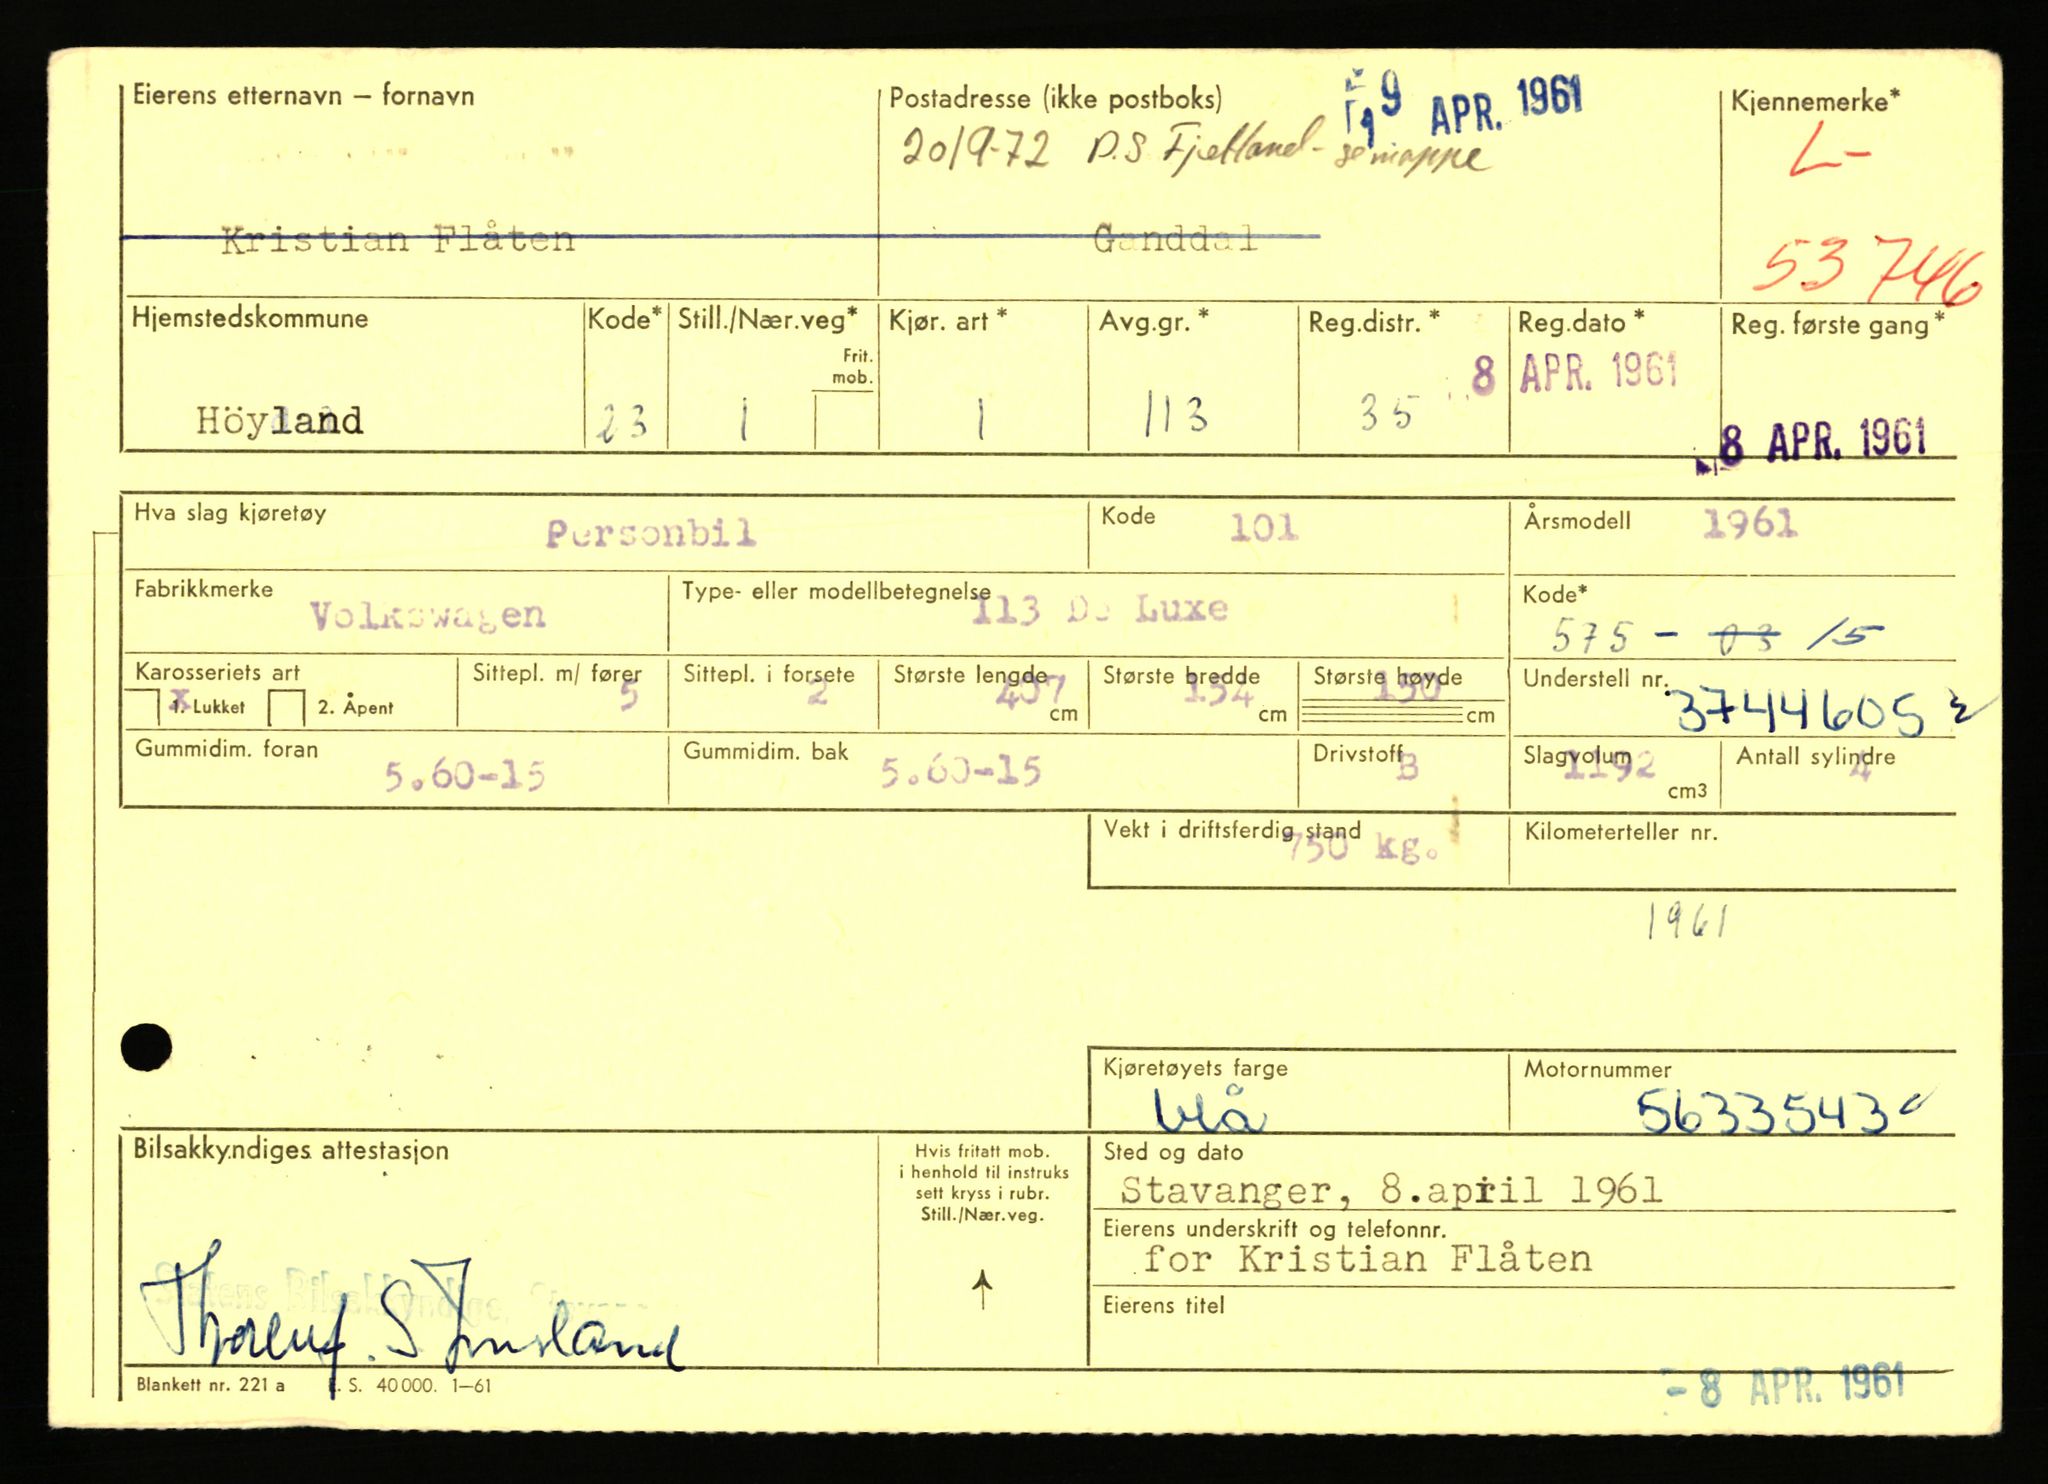 Eierens etternavn – fornavn
Postadresse (ikke postboks)
9 APR. 1961
Kjennemerke*
20/9-72 P.S. Fjetland - se mappe
L-
Kristian Flåten
Ganddal
53746
Hjemstedskommune
Kode*
Still./Nær.veg*
Frit. mob.
Kjør. art*
Avg.gr.*
Reg.distr.*
Reg.dato*
Reg. første gang*
8 APR. 1961
Höyland
23
1
1
113
35
8 APR. 1961
Hva slag kjøretøy
Personbil
Kode
101
Årsmodell
1961
Fabrikkmerke
Volkswagen
Type- eller modellbetegnelse
113 De Luxe
Kode*
575 - 03 15
Karosseriets art
x
1. Lukket
2. Åpent
Sittepl. m/ fører
5
Sittepl. i forsete
2
Største lengde
407
cm
Største bredde
154
cm
Største høyde
150
cm
Understell nr.
3744605
Gummidim. foran
5.60-15
Gummidim. bak
5.60-15
Drivstoff
B
Slagvolum
1192
cm3
Antall sylindre
4
Vekt i driftsferdig stand
750 kg.
Kilometerteller nr.
1961
Kjøretøyets farge
blå
Motornummer
5633543
Bilsakkyndiges attestasjon
Hvis fritatt mob.
i henhold til instruks
sett kryss i rubr.
Still./Nær.veg.
Sted og dato
Stavanger, 8.april 1961
Eierens underskrift og telefonnr.
for Kristian Flåten
Statens Bilsakkyndige,
Eierens titel
Blankett nr. 221 a
E. S. 40 000. 1–61
- 8 APR. 1961